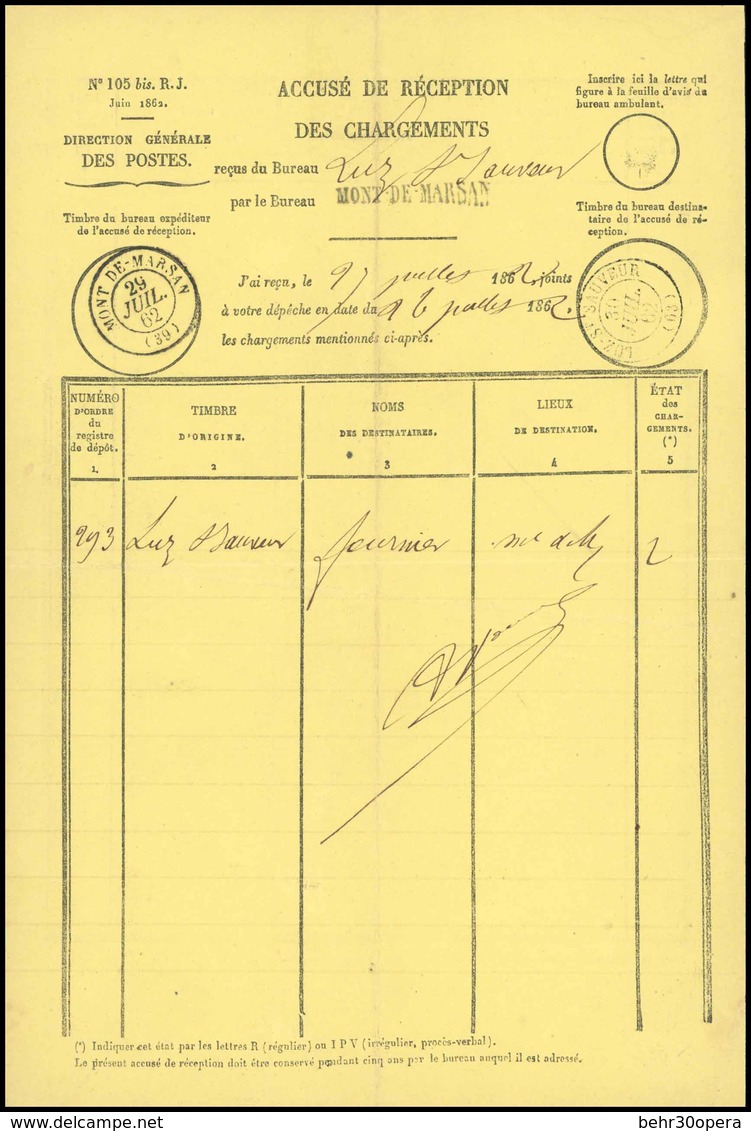 N° 105 bis. R. J.
Juin 1862.
DIRECTION GÉNÉRALE
DES POSTES.
Timbre du bureau expéditeur
de l'accusé de réception.
MONT-DE-MARSAN
29
JUIL.
62
(39)
ACCUSÉ DE RÉCEPTION
DES CHARGEMENTS
reçus du Bureau Luz St Sauveur
par le Bureau MONT-DE-MARSAN
Inscrire ici la lettre qui
figure à la feuille d'avis du
bureau ambulant.
Timbre du bureau destina-
taire de l'accusé de ré-
ception.
LUZ-ST-SAUVEUR
30
JUIL.
62
J'ai reçu, le 27 juillet 1862, joints
à votre dépêche en date du 26 juillet 1862.
les chargements mentionnés ci-après.
NUMÉRO
D'ORDRE
du
registre
de dépôt.
1.
TIMBRE
D'ORIGINE.
2
NOMS
DES DESTINATAIRES.
3
LIEUX
DE DESTINATION.
4
ÉTAT
des
CHAR-
GEMENTS.
(*)
5
293 Luz St Sauveur fournier mt de M
(*) Indiquer cet état par les lettres R (régulier) ou I P V (irrégulier, procès-verbal).
Le présent accusé de réception doit être conservé pendant cinq ans par le bureau auquel il est adressé.
behr30opera